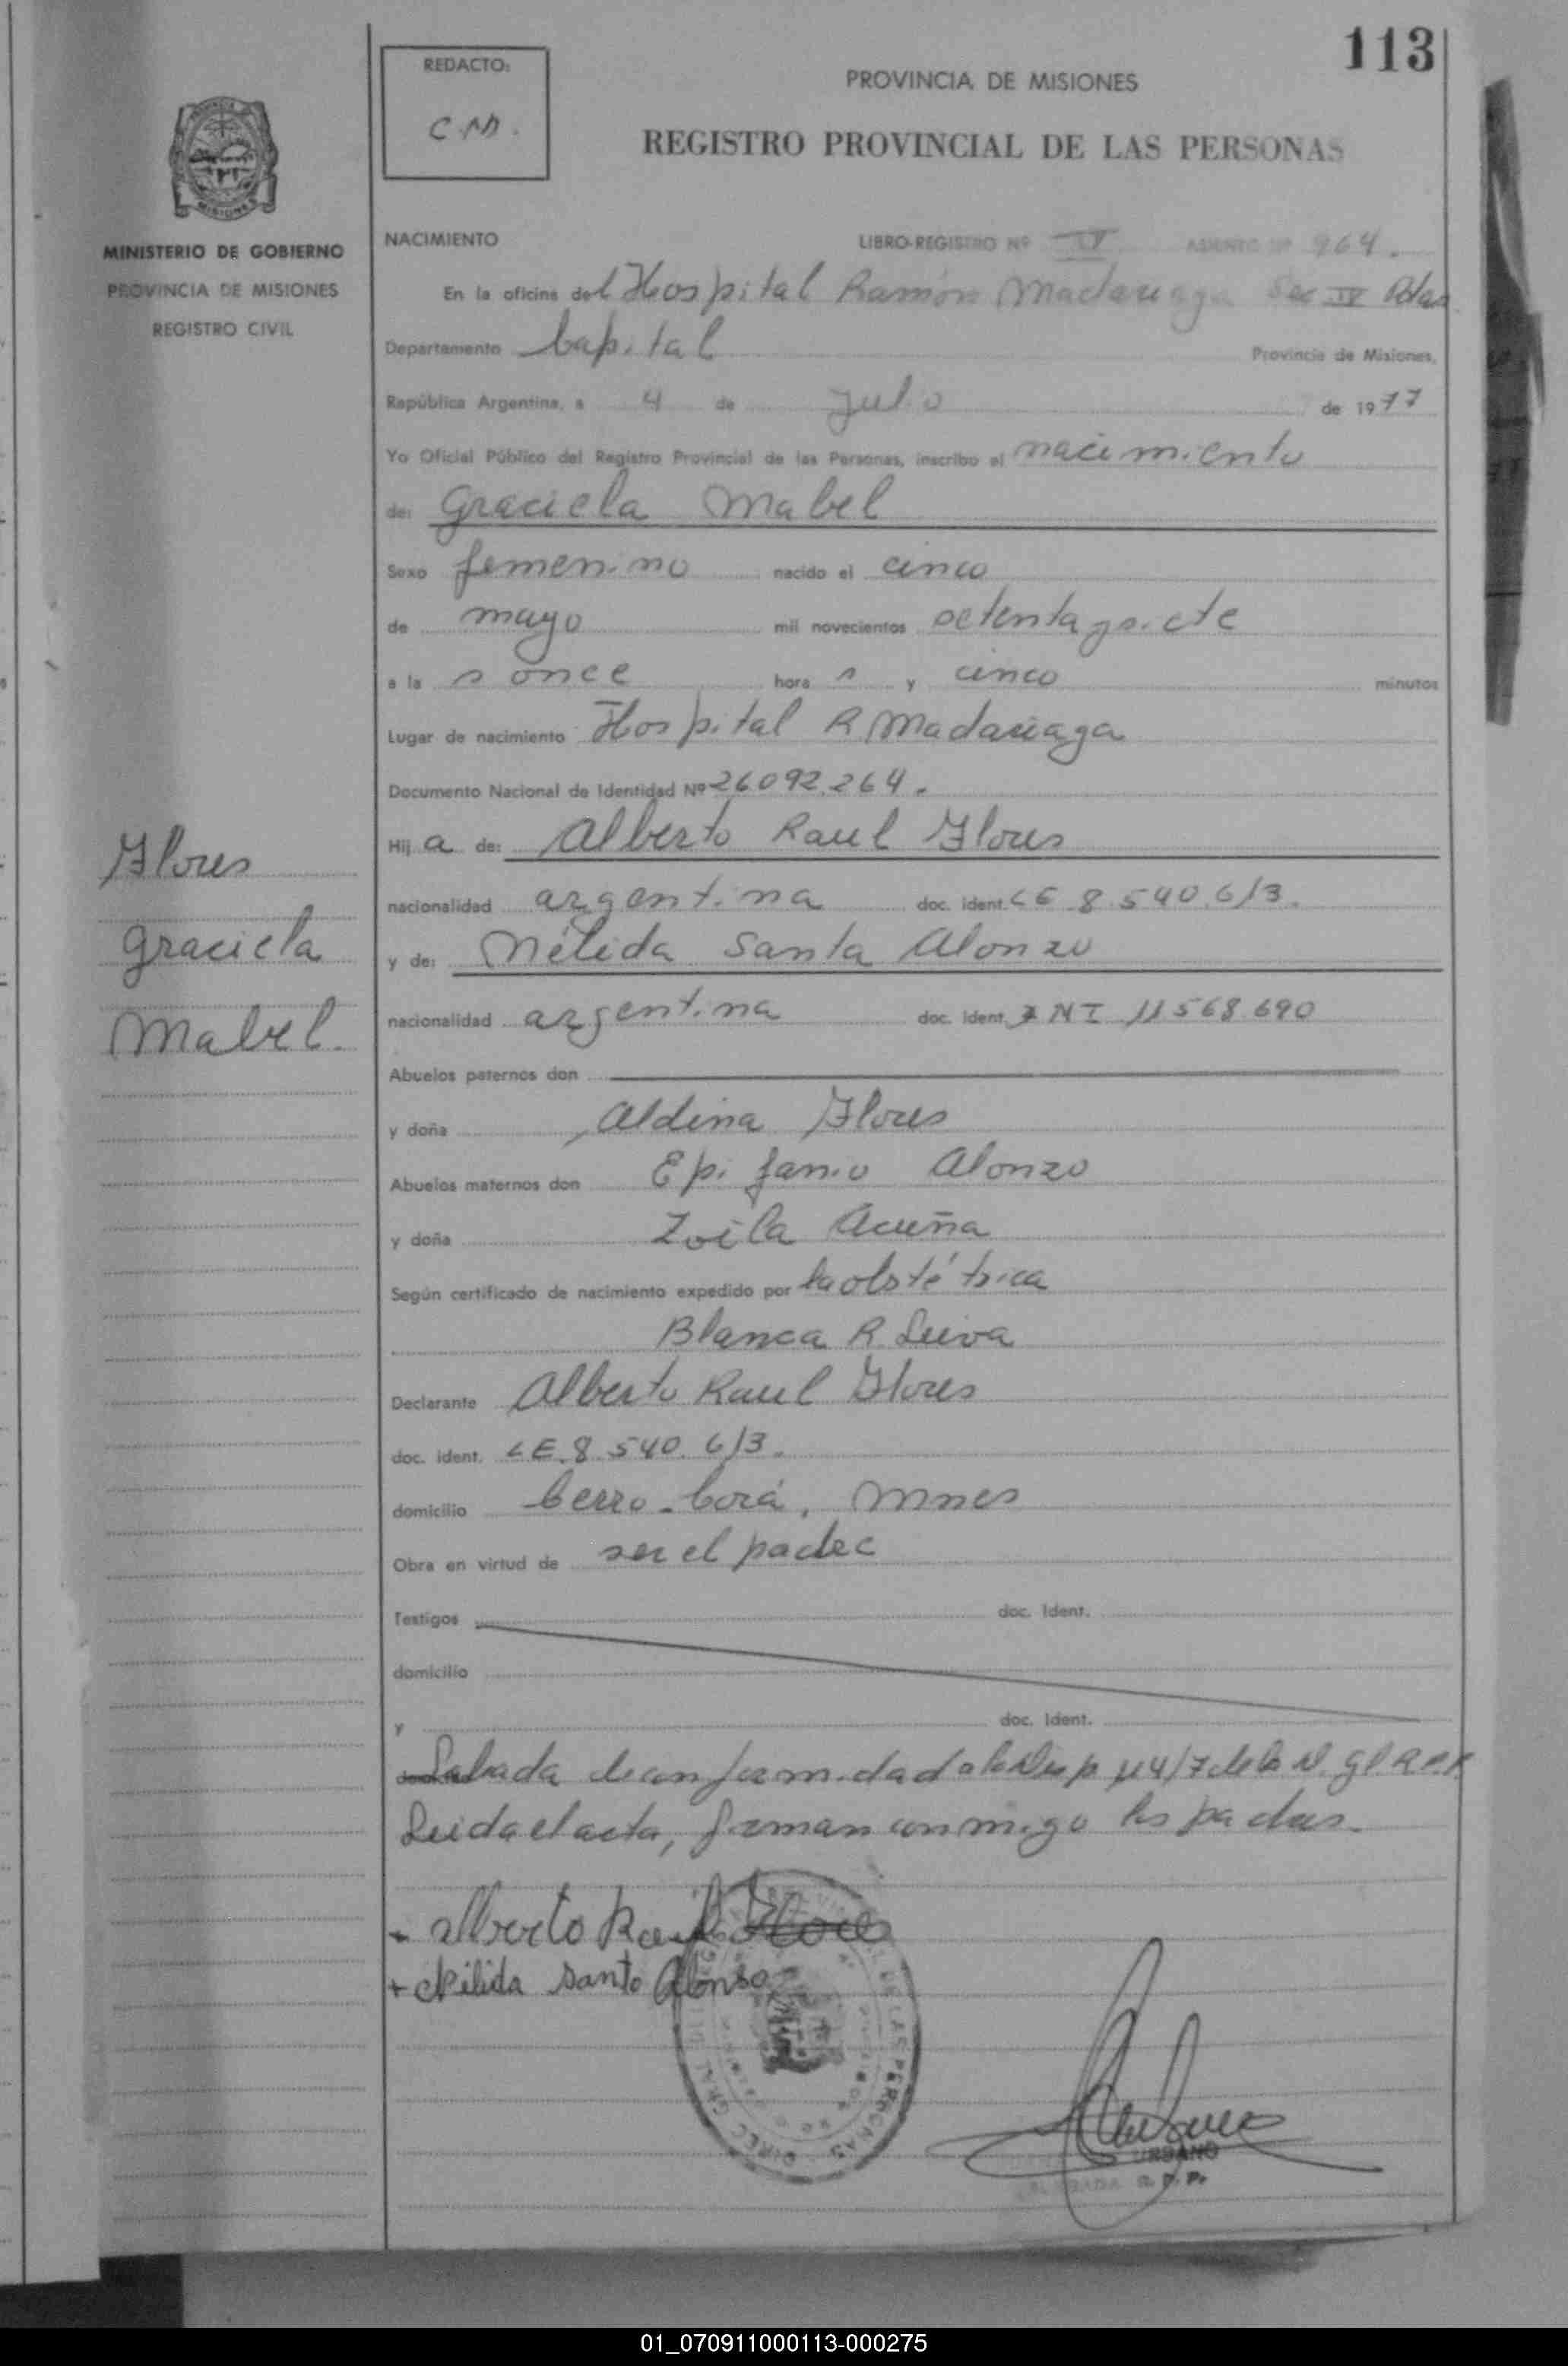 113
REDACTO:
C.M.
PROVINCIA DE MISIONES
REGISTRO PROVINCIAL DE LAS PERSONAS
MISIONES
MINISTERIO DE GOBIERNO
PROVINCIA DE MISIONES
REGISTRO CIVIL
NACIMIENTO LIBRO-REGISTRO Nº IV ASIENTO Nº 964.
En la oficina del Hospital Ramón Madariaga Sec IV Pdas
Departamento Capital Provincia de Misiones,
República Argentina, a 4 de Julio de 1977
Yo Oficial Público del Registro Provincial de las Personas, inscribo el nacimiento
de: Graciela Mabel
Sexo femenino nacido el cinco
de mayo mil novecientos setenta y siete
a la s once hora s y cinco minutos
Lugar de nacimiento Hospital R Madariaga
Documento Nacional de Identidad Nº 26.092.264.
Hij a de: Alberto Raul Flores
nacionalidad argentina doc. ident. LE 8.540.613.
y de: Nélida Santa Alonzo
nacionalidad argentina doc. ident. DNI 11.568.690
Flores
Graciela
Mabel.
Abuelos paternos don
y doña Aldina Flores
Abuelos maternos don Epifanio Alonzo
y doña Zoila Acuña
Según certificado de nacimiento expedido por la obstétrica
Blanca R. Leiva
Declarante Alberto Raul Flores
doc. ident. LE. 8.540.613.
domicilio Cerro-Corá, Mnes
Obra en virtud de ser el padre
Testigos doc. Ident.
domicilio
y doc. Ident.
Labada de conformidad a la Disp 114/7 de la D. Gl. R.P.P.
Leida el acta, firman conmigo los padres.
alberto Raul Flores
+ Nélida Santa Alonso
DIREC GRAL DE LAS PERSONAS
URBANO
R. P. P.
01_070911000113-000275